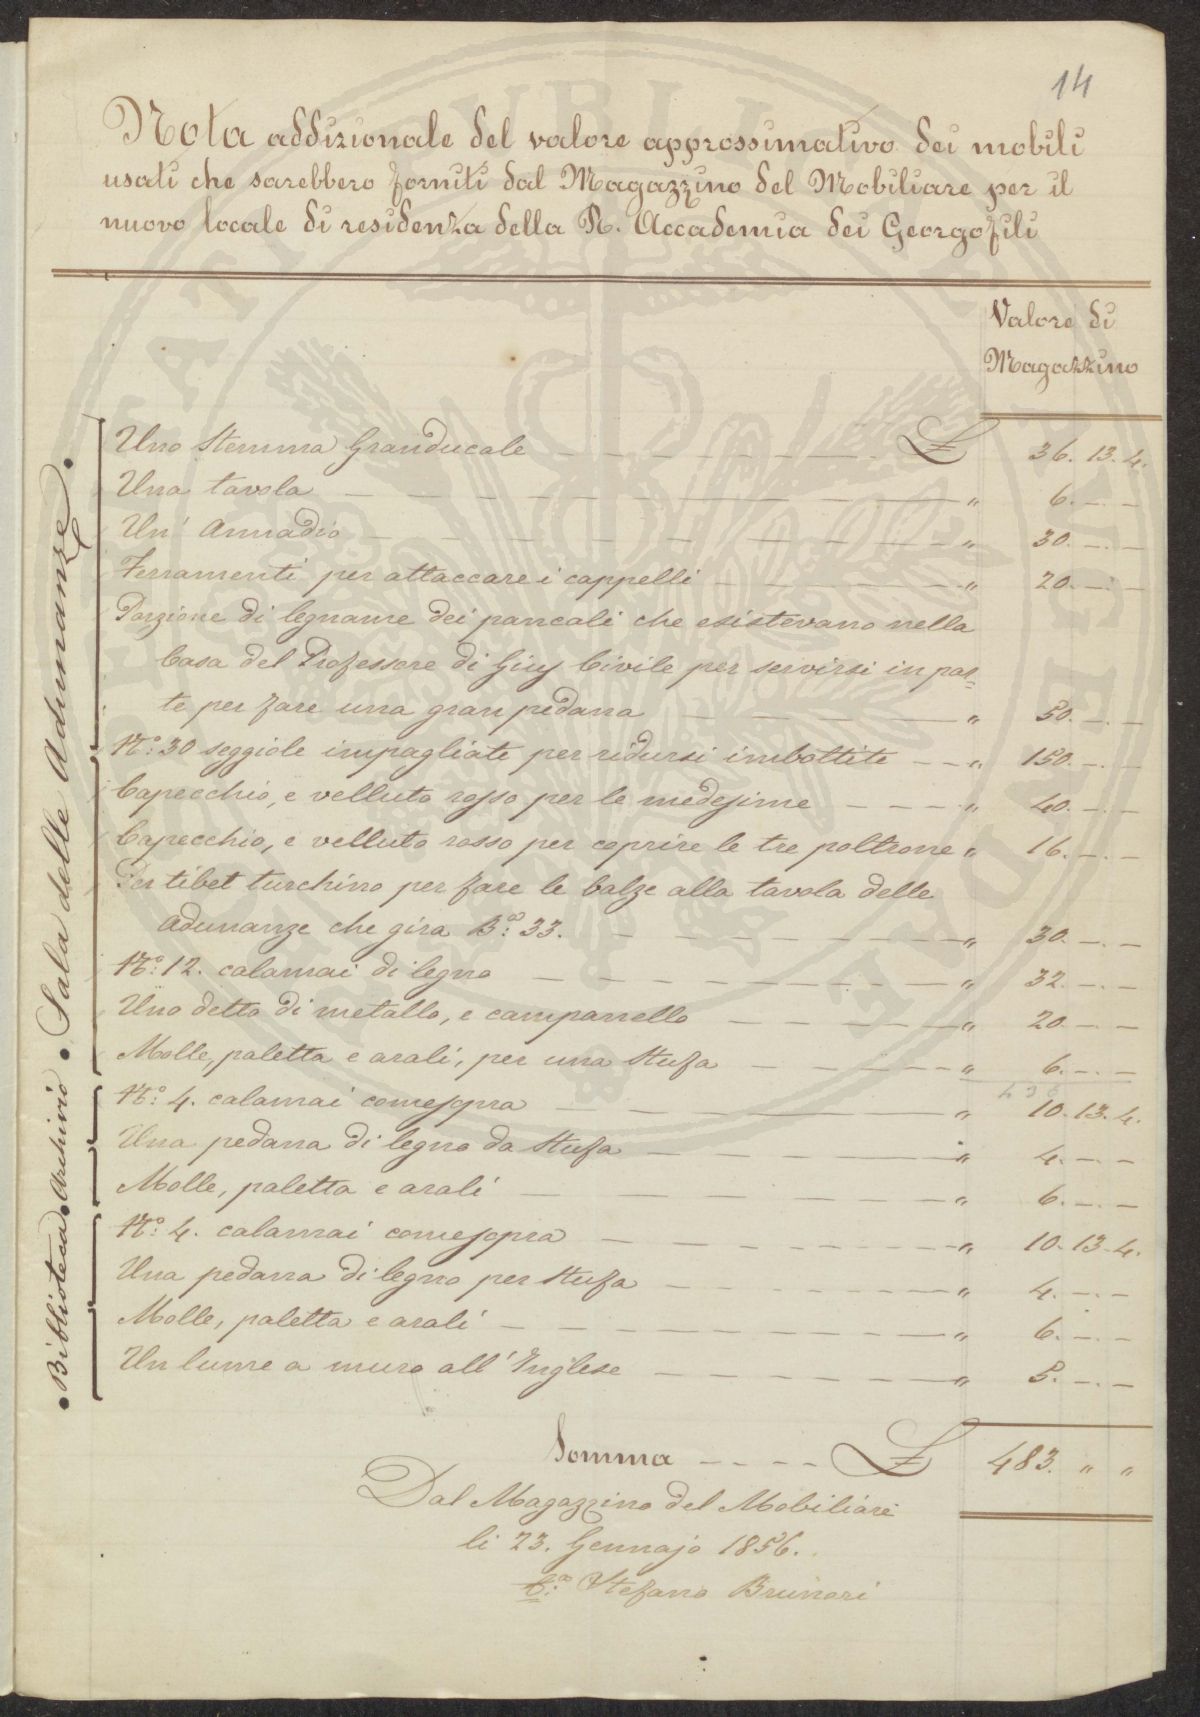 14
Nota addizionale del valore approssimativo dei mobili
usati che sarebbero forniti dal Magazzino del Mobiliare per il
nuovo locale di residenza della R. Accademia dei Georgofili
Valore di
Magazzino
Sala delle Adunanze.
Uno Stemma Granducale £ 36. 13. 4.
Una tavola " 6. — —
Un' Armadio " 30. — —
Ferramenti per attaccare i cappelli " 20. — —
Porzione di legname dei pancali che esistevano nella
Casa del Professore di Giuş Civile per servirsi in par=
te per fare una gran pedana " 50. — —
N.º 30 seggiole impagliate per ridursi imbottite " 150. — —
Capecchio, e velluto rosso per le medesime " 40. — —
Capecchio, e velluto rosso per coprire le tre poltrone " 16. — —
Per tibet turchino per fare le balze alla tavola delle
adunanze che gira B.ª 33. " 30. — —
N.º 12. calamai di legno " 32. — —
Uno detto di metallo, e campanello " 20 — —
Molle, paletta e arali, per una Stufa " 6. — —
436
Archivio
N.º 4. calamai comesopra " 10. 13. 4.
Una pedana di legno da Stufa " 4. — —
Molle, paletta e arali " 6. — —
Biblioteca
N.º 4. calamai comesopra " 10. 13. 4.
Una pedana di legno per Stufa " 4. — —
Molle, paletta e arali " 6. — —
Un lume a muro all' Inglese " 5. — —
Somma £ 483. " "
Dal Magazzino del Mobiliare
li 23. Gennajo 1856.
Stefano Brunori